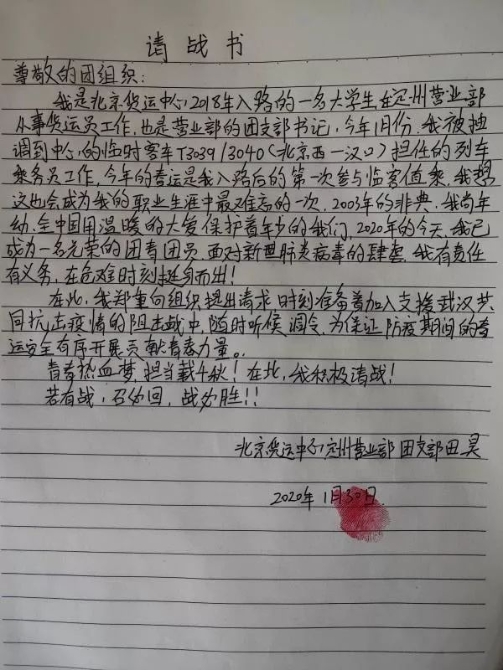 请战书
尊敬的团组织：
我是北京货运中心2018年入路的一名大学生在定州营业部
从事货运员工作，也是营业部的团支部书记，今年1月份，我被抽
调到中心的临时客车T3039/3040(北京西一汉口)担任的列车
乘务员工作，今年的春运是我入路后的第一次参与临客值乘，我想
这也会成为我的职业生涯中最难忘的一次，2003年的非典，我尚年
幼，全中国用温暖的大爱保护着年少的我们，2020年的今天，我已
成为一名光荣的团青团员，面对新型肺炎病毒的肆虐，我有责任
有义务，在危难时刻挺身而出！
在此，我郑重向组织提出请求时刻准备着加入支援武汉共
同抗击疫情的阻击战中，随时听候调令，为保证防疫期间的春
运安全有序开展贡献青春力量。
青春热血梦，担当载千秋！在此，我积极请战！
若有战，召必回，战必胜！！
北京货运中心定州营业部团支部田昊
2020年1月30日